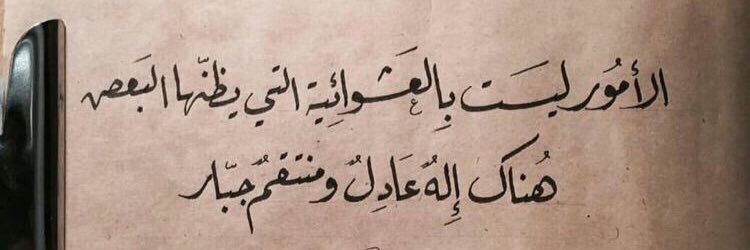 الأمُور ليسَت بِالعَشوائِية التي يظنّها البَعض
هُناك إلهٌ عَادِلٌ ومنتقمٌ جبّار